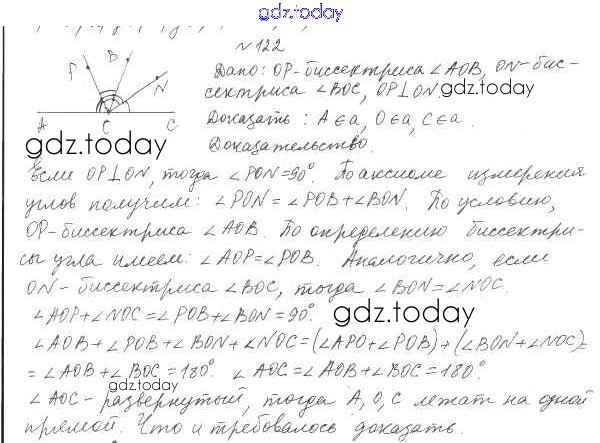 gdz.today
№122
P B N
A C C
Дано: OP-биссектриса ∠AOB, ON-бис-
сектриса ∠BOC, OP⊥ON.
gdz.today
Доказать: A∈a, O∈a, C∈a.
gdz.today
Доказательство.
Если OP⊥ON, тогда ∠PON=90°. По аксиоме измерения
углов получим: ∠PON = ∠POB+∠BON. По условию,
OP-биссектриса ∠AOB. По определению биссектри-
сы угла имеем: ∠AOP=∠POB. Аналогично, если
ON-биссектриса ∠BOC, тогда ∠BON=∠NOC.
∠AOP+∠NOC=∠POB+∠BON=90°.
gdz.today
∠AOB+∠POB+∠BON+∠NOC=(∠APO+∠POB)+(∠BON+∠NOC)=
=∠AOB+∠BOC=180°. ∠AOC=∠AOB+∠BOC=180°.
gdz.today
∠AOC-развернутый, тогда A, O, C лежат на одной
прямой. Что и требовалось доказать.